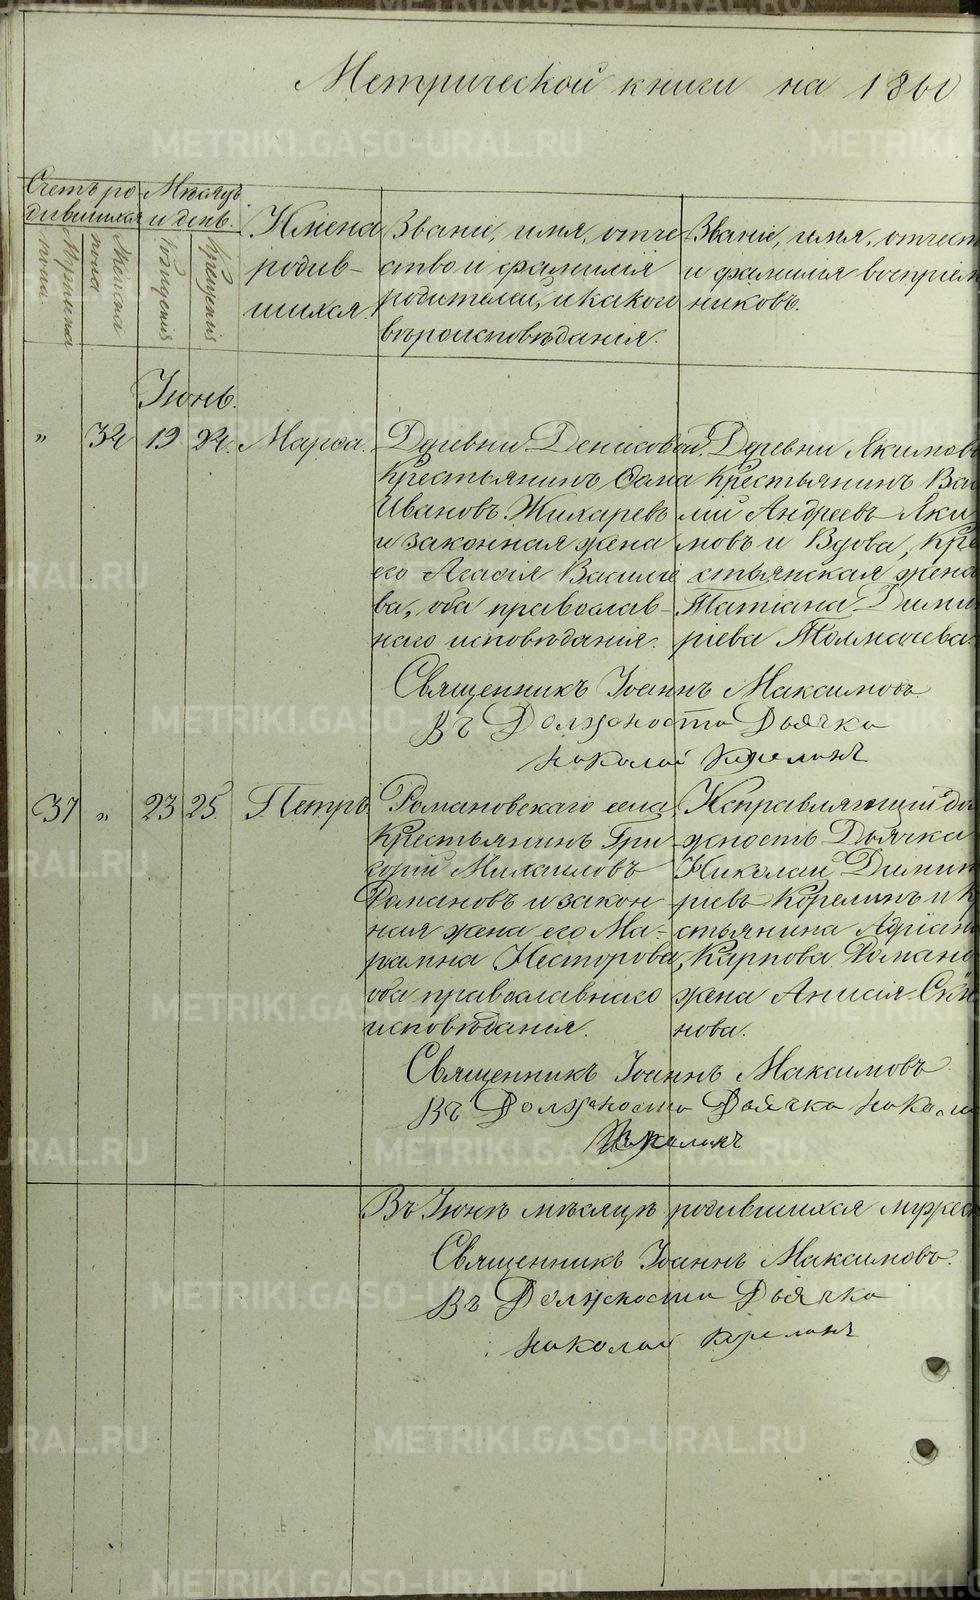 Метрической книги на 1860
Счетъ ро-
дившихся
Мѣсяцъ
и день.
Мужеска
пола
Женска
пола
Рожденія
Крещенія
Имена
родив-
шихся.
Званіе, имя, отче-
ство и фамилія
родителей, и какого
вѣроисповѣданія.
Званіе, имя, отчест
и фамилія воспріем
никовъ.
Іюнь.
" 34 19 24. Марѳа.
Деревни Денисовой
Крестьянинъ Ѳома
Ивановъ Жихаревъ
и законная жена
его Агафія Василіе
ва, оба православ-
наго исповѣданія.
Деревни Якимово
Крестьянинъ Васи
лій Андреевъ Яки
мовъ и Вдова, Кре
стьянская жена
Татіана Дими
ріева Толмачева.
Священникъ Іоаннъ Максимовъ
Въ Должности Дьячка
Николай Корелинъ
37 " 23 25. Петръ.
Романовскаго села
Крестьянинъ Гри-
горій Михаиловъ
Романовъ и закон-
ная жена его Ма-
рамна Несторова,
оба православнаго
исповѣданія.
Исправляющій до
жность Дьячка
Николай Димит
ріевъ Корелинъ и К
стьянина Адріан
Карпова Романо
жена Анисія Семе
нова.
Священникъ Іоаннъ Максимовъ
Въ Должности Дьячка Никола
Корелинъ
Въ Іюнѣ мѣсяцѣ родившихся мужес
Священникъ Іоаннъ Максимовъ.
Въ Должности Дьячка
Николай Корелинъ
METRIKI.GASO-URAL.RU